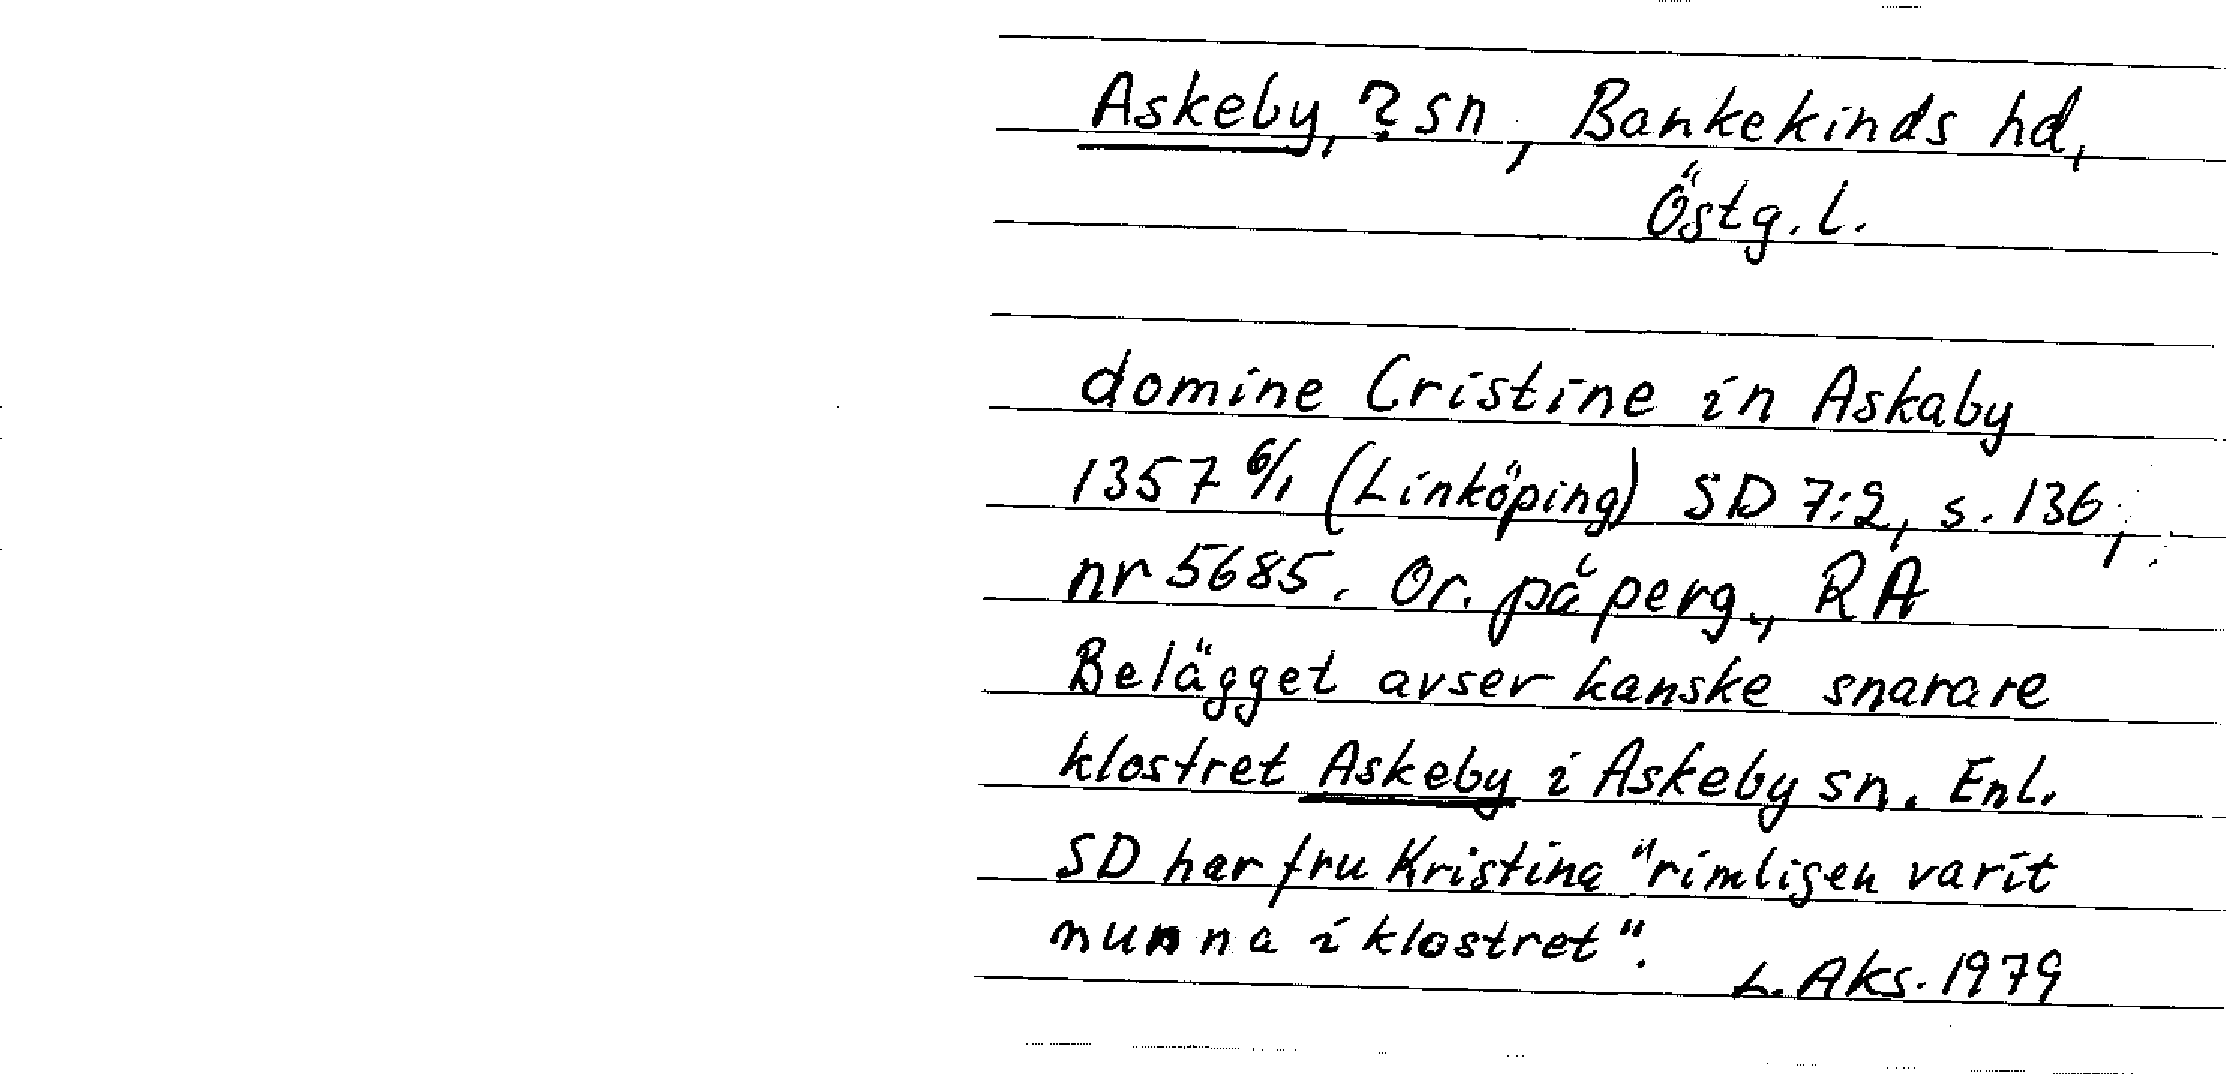 Askeby, ? sn, Bankekinds hd,
Östg. l.
domine Cristine in Askaby
1357 6/1 (Linköping) SD 7:2, s. 136,
nr 5685. Or. på perg., RA
Belägget avser kanske snarare
klostret Askeby i Askeby sn. Enl.
SD har fru Kristina "rimligen varit
nunna i klostret".
L. Aks. 1979